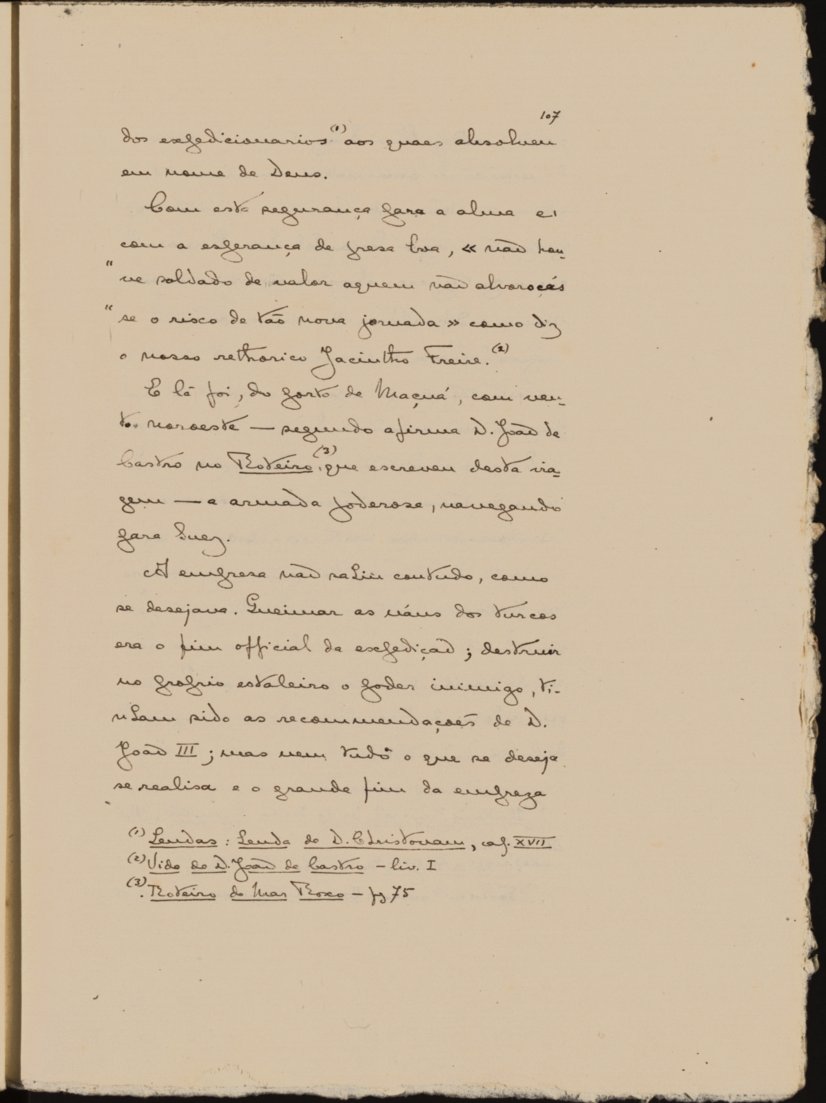 107
dos expedicionarios (1) aos quaes absolveu
em nome de Deus.
Com esta segurança para a alma e
com a esperança de presa boa, « não hou-
" ve soldado de valor aquem não alvoroças
" se o risco de tão nova jornada » como diz
o nosso rethorico Jacintho Freire. (2)
E lá foi, do porto de Maçuá, com ven-
to noroeste — segundo afirma D. João de
Castro no Roteiro (3), que escreveu desta via-
gem — a armada poderosa, navegando
para Suez.
A empresa não sahiu contudo, como
se desejava. Queimar as náus dos turcos
era o fim official da expedição; destruir
no proprio estaleiro o poder inimigo, ti-
nham sido as recommendações de D.
João III; mas nem tudo o que se deseja
se realisa e o grande fim da empreza
(1) Lendas: Lenda de D. Christovam, cap. XVII
(2) Vida de D. João de Castro - liv. I
(3) Roteiro do Mar Roxo - pg 75